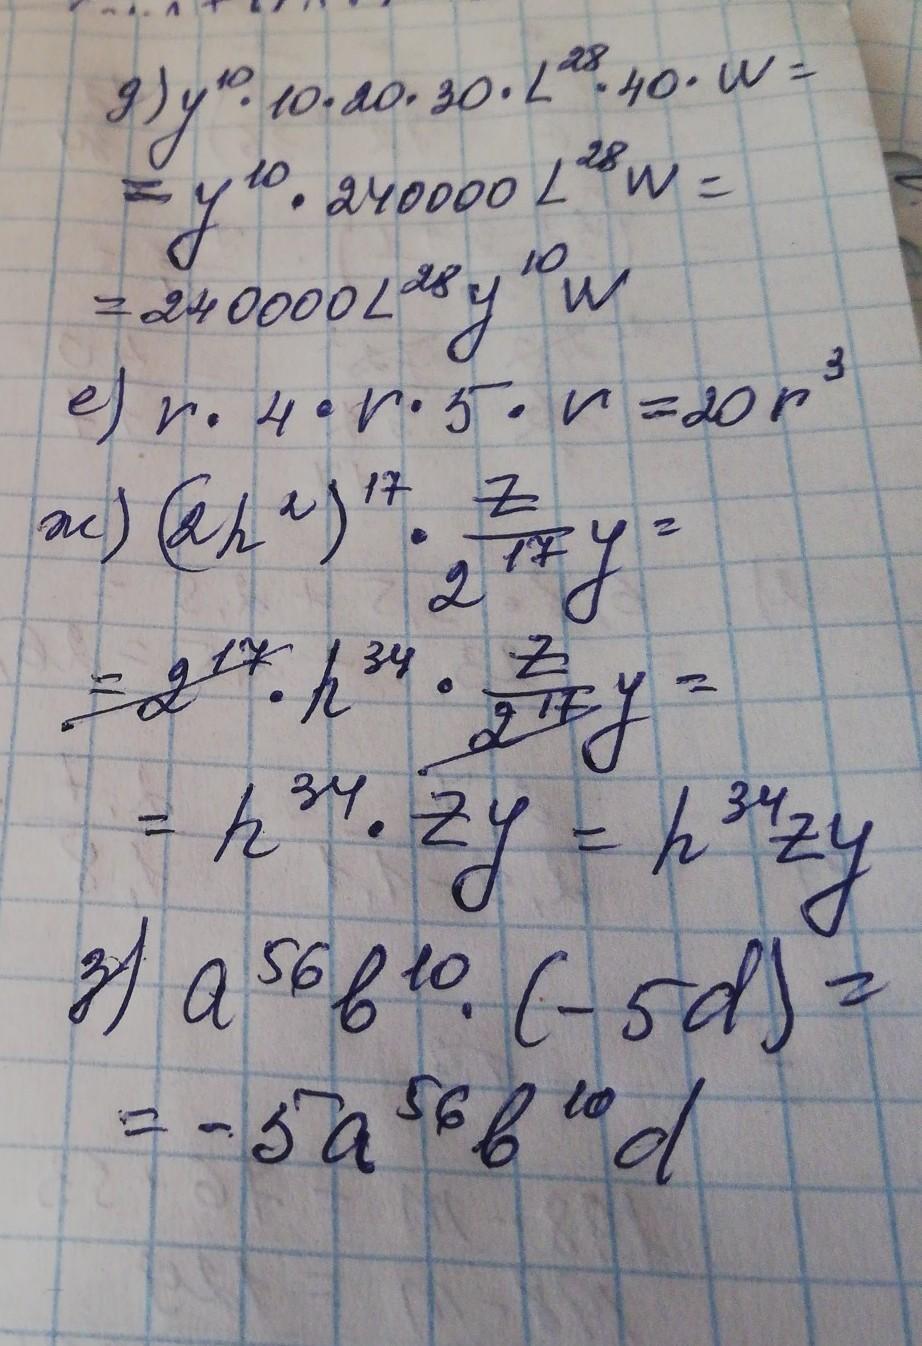 д) y¹⁰·10·20·30·L²⁸·40·W=
= y¹⁰·240000L²⁸W=
=240000L²⁸y¹⁰W
е) r·4·r·5·r=20r³
ж) (2h²)¹⁷·z/2¹⁷ y=
=2¹⁷·h³⁴·z/2¹⁷ y=
= h³⁴·zy = h³⁴zy
з) a⁵⁶b¹⁰·(-5d)=
=-5a⁵⁶b¹⁰d